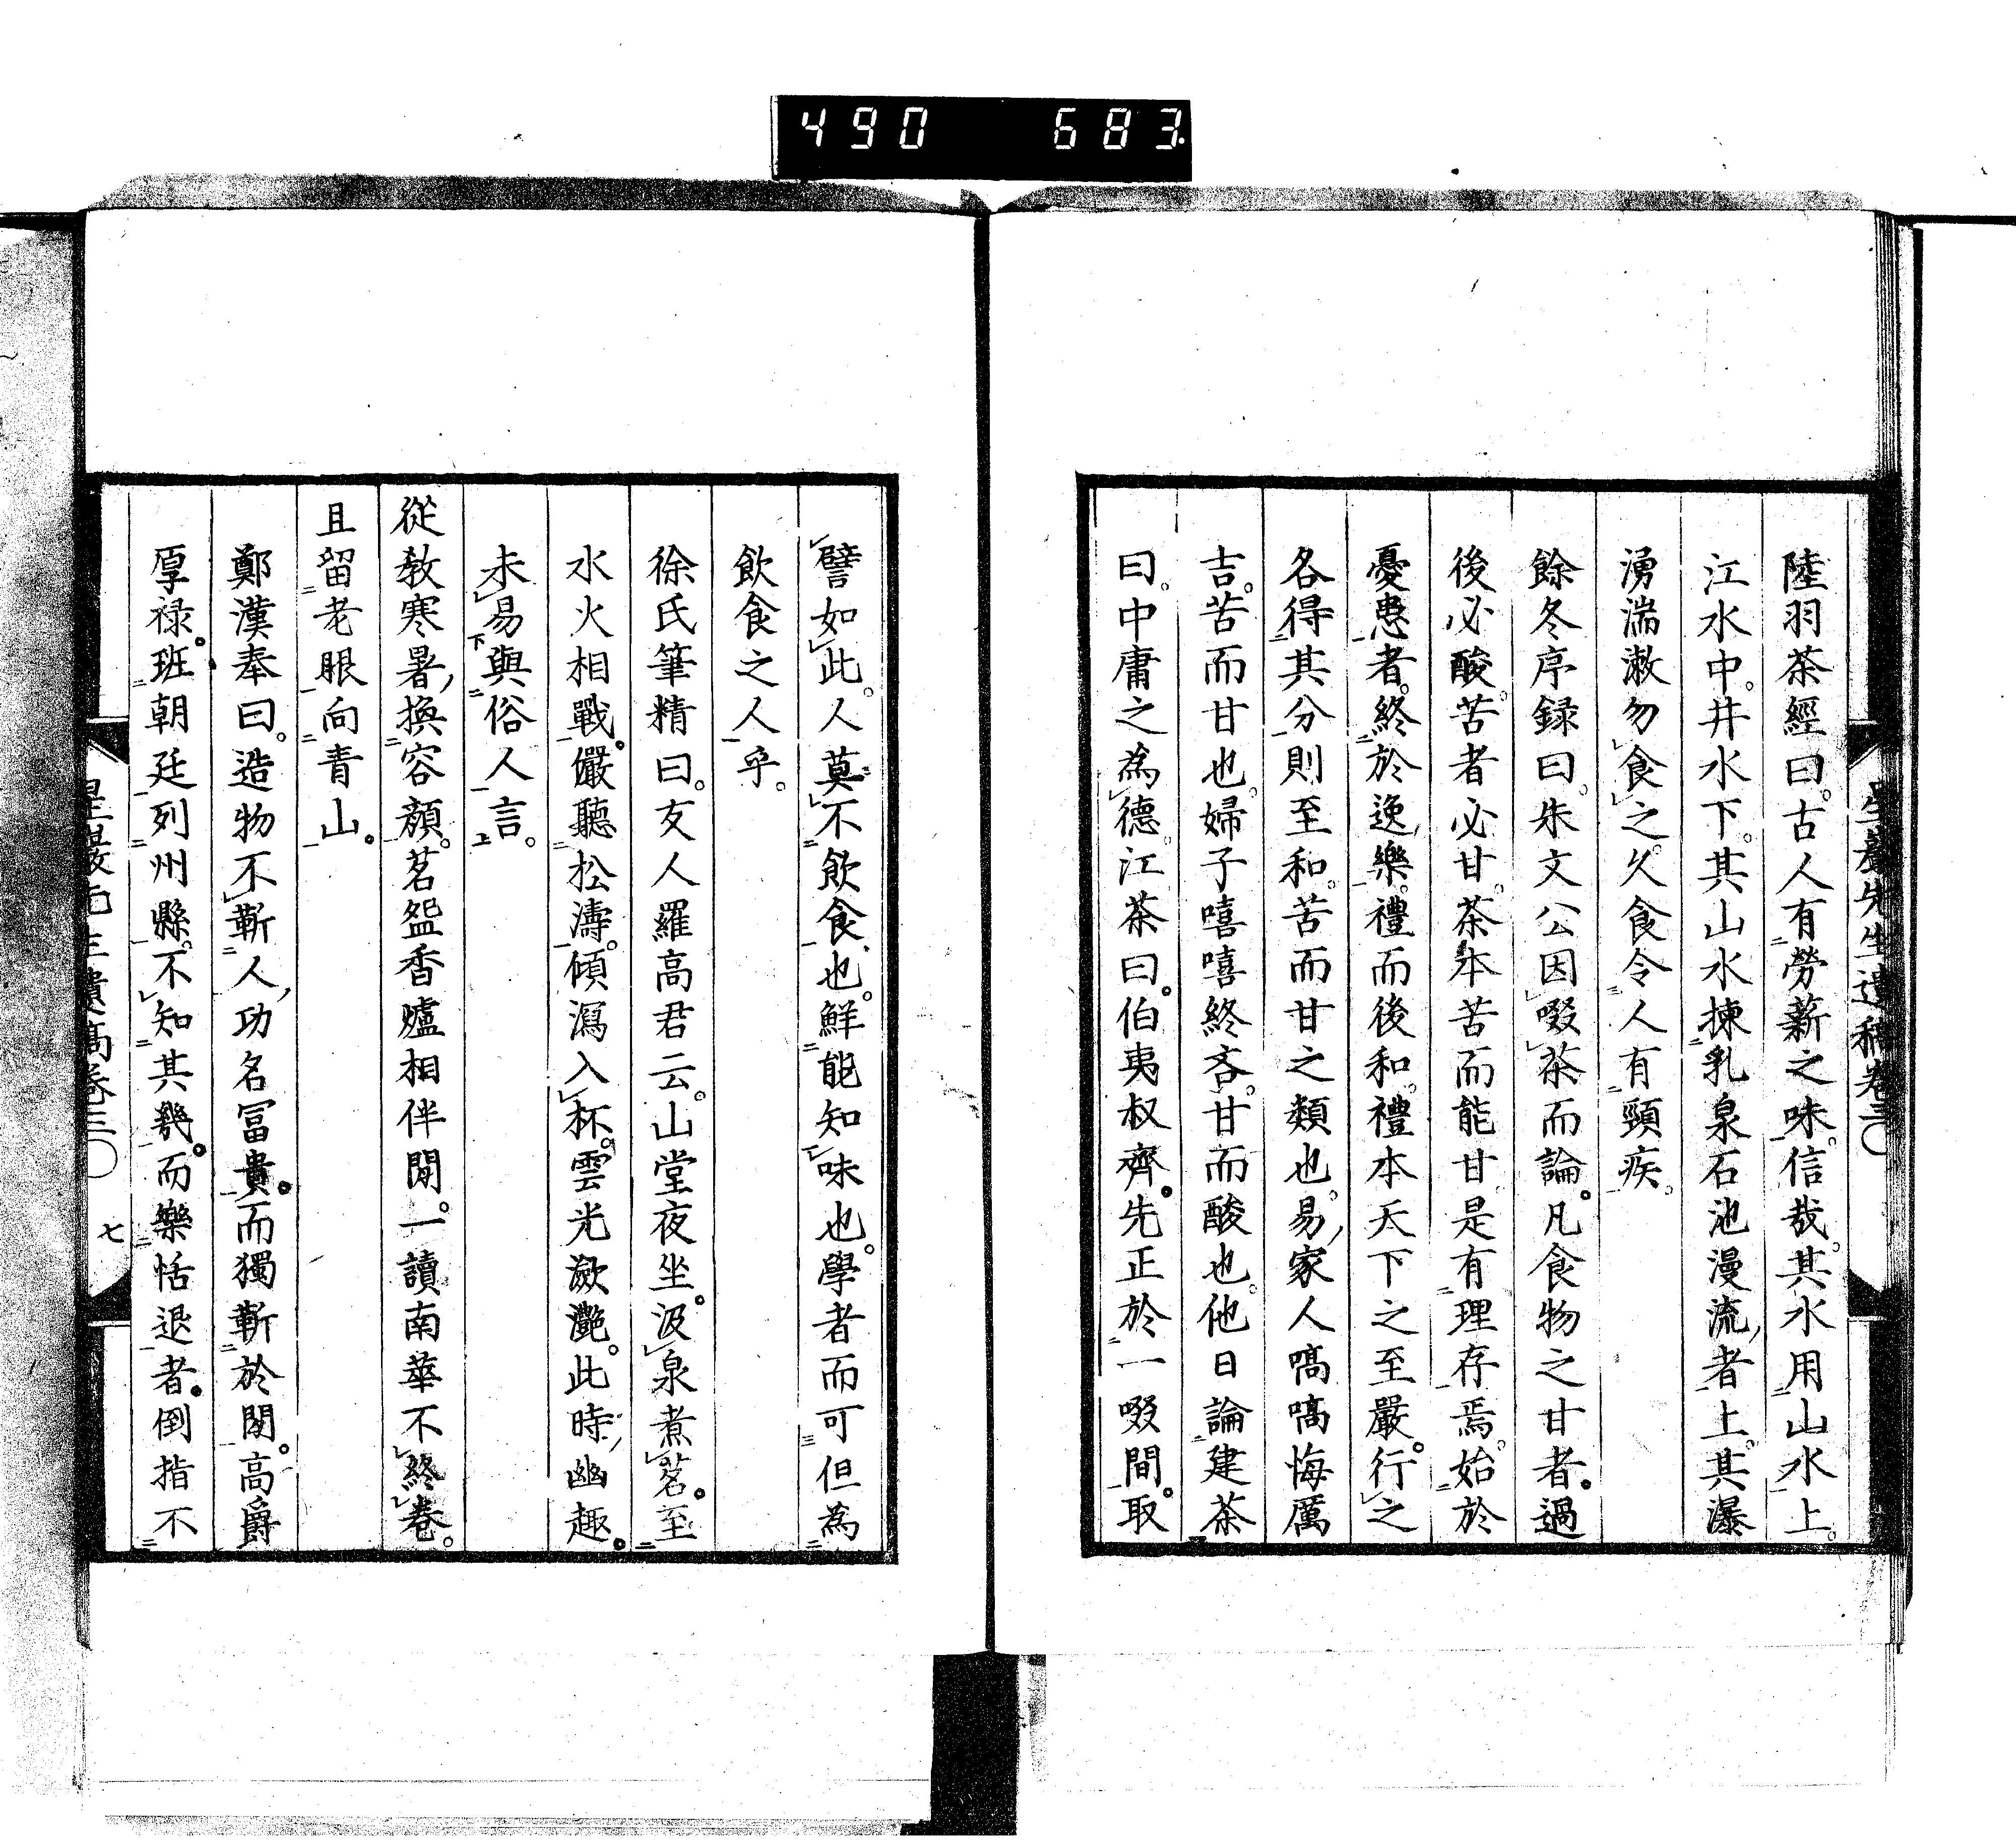 490 683
陸羽茶經曰。古人有勞薪之味。信哉。其水用山水上。
江水中。井水下。其山水揀乳泉石池漫流者上。其瀑
湧湍漱勿食之。久食令人有頸疾。
餘冬序録曰。朱文公因啜茶而論。凡食物之甘者。過
後必酸。苦者必甘。茶本苦而能甘。是有理存焉。始於
憂患者。終於逸樂。禮而後和。禮本天下之至嚴。行之
各得其分。則至和。苦而甘之類也。易家人嗃嗃悔厲
吉。苦而甘也。婦子嘻嘻終吝。甘而酸也。他日論建茶
曰。中庸之為德。江茶曰。伯夷叔齊。先正於一啜間。取
譬如此。人莫不飲食也。鮮能知味也。學者而可但為
飲食之人乎。
徐氏筆精曰。友人羅高君云。山堂夜坐。汲泉煮茗。至
水火相戰。儼聽松濤。傾瀉入杯。雲光瀲灔。此時幽趣。
未易與俗人言。
從教寒暑換容顔。茗盌香爐相伴閒。一讀南華不終卷。
且留老眼向青山。
鄭漢奉曰。造物不靳人功名冨貴。而獨靳於閒。高爵
厚禄。班朝廷列州縣。不知其幾。而樂恬退者。倒指不
星巖先生遺稿卷三
七